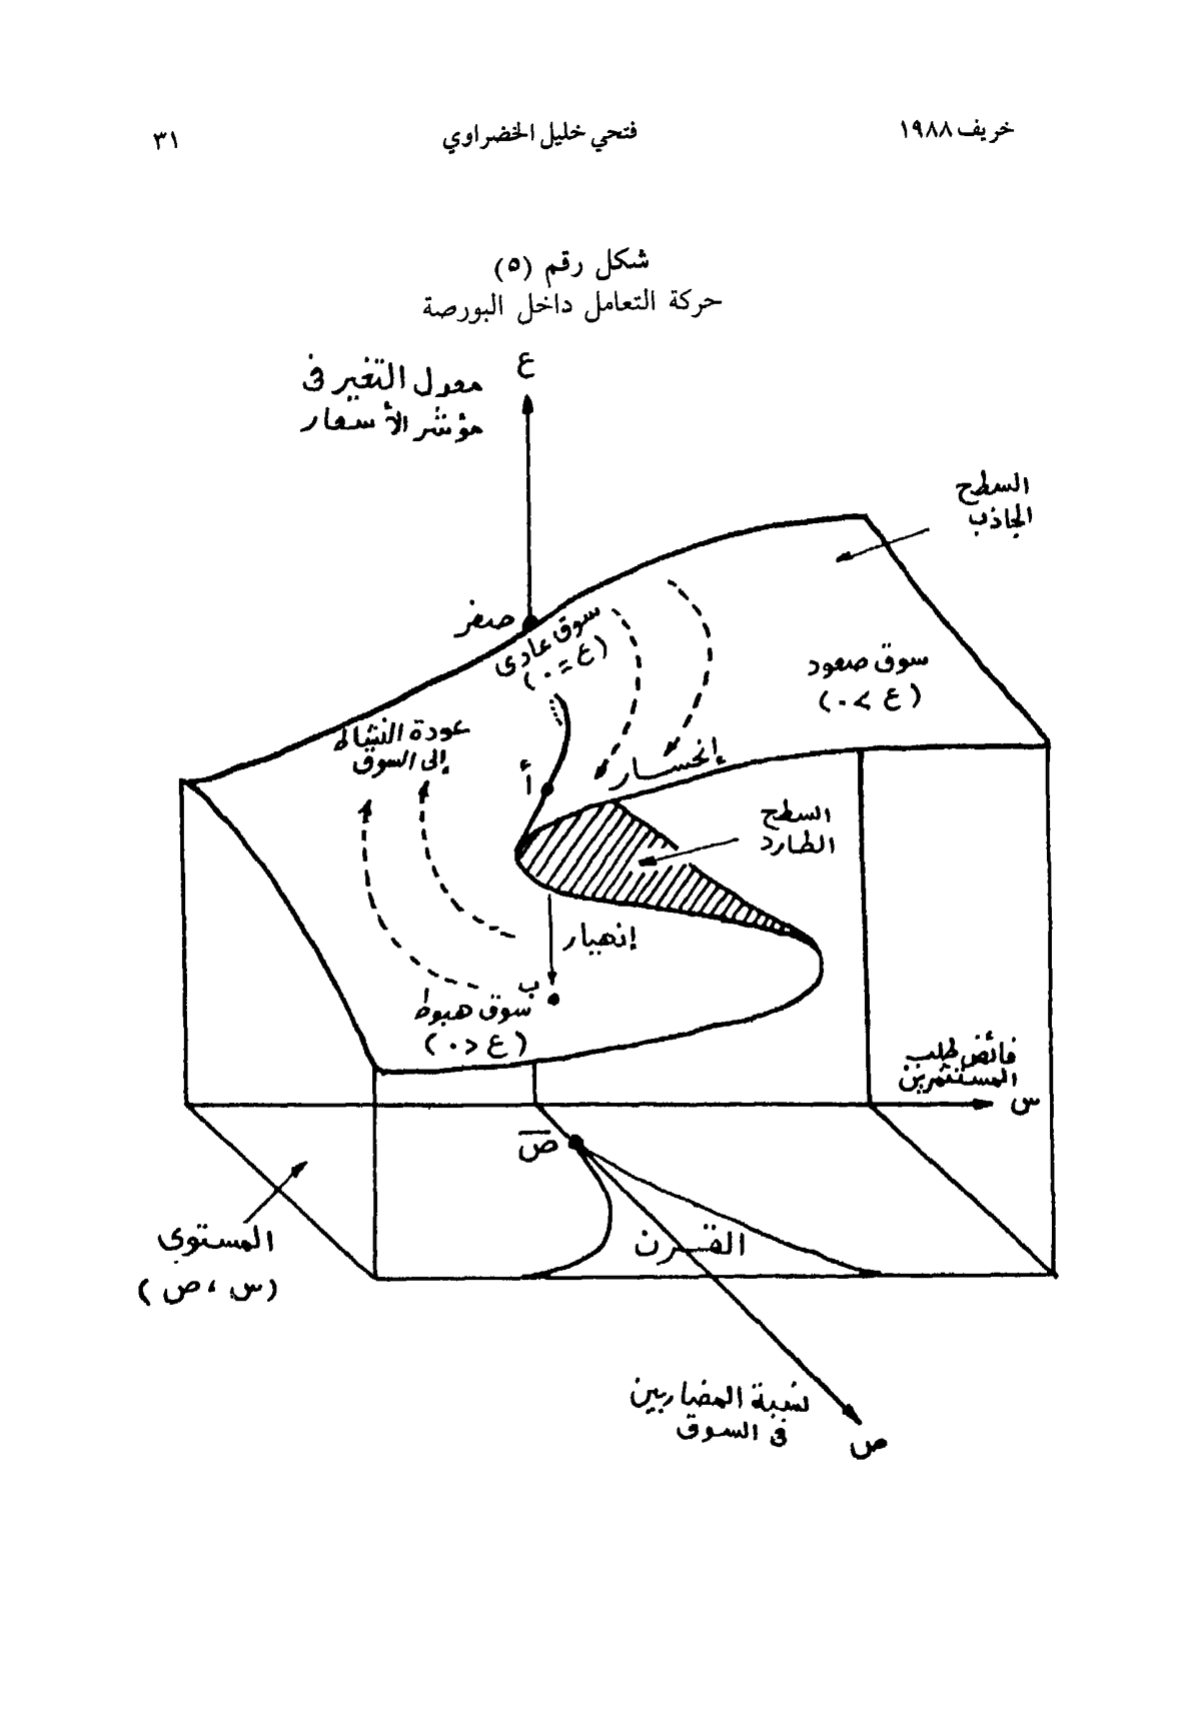 خريف ١٩٨٨
فتحي خليل الخضراوي
٣١
شكل رقم (٥)
حركة التعامل داخل البورصة
ع
معدل التغير فى
مؤشر الأسعار
السطح
الجاذب
صفر
سوق عادى
(ع = ٠)
سوق صعود
(ع > ٠)
عودة النشاط
إلى السوق
إنحسار
أ
السطح
الطارد
إنهيار
ب
سوق هبوط
(ع < ٠)
فائض طلب
المستثمرين
س
ص
القرن
المستوى
(س ، ص)
نسبة المضاربين
فى السوق
ص